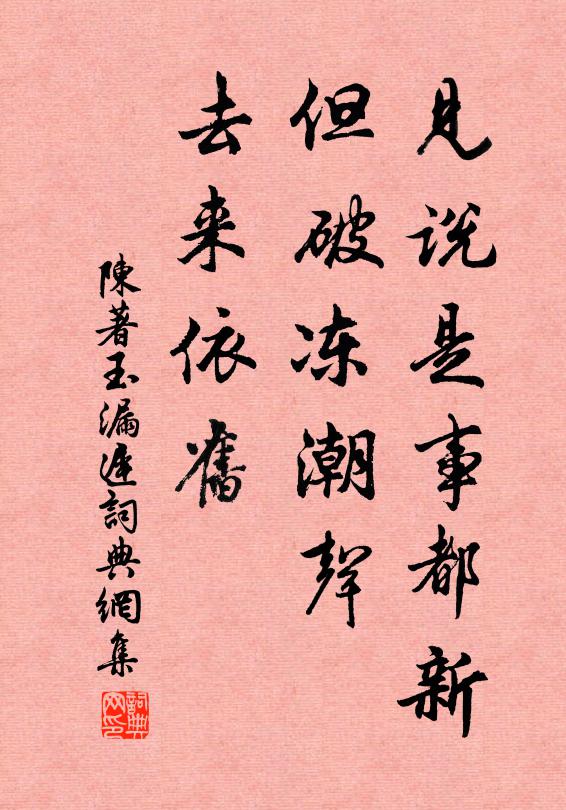 見说是事都新
但破冻潮聲
去来依舊
陳著玉漏遲詞典網集
詞典
网印